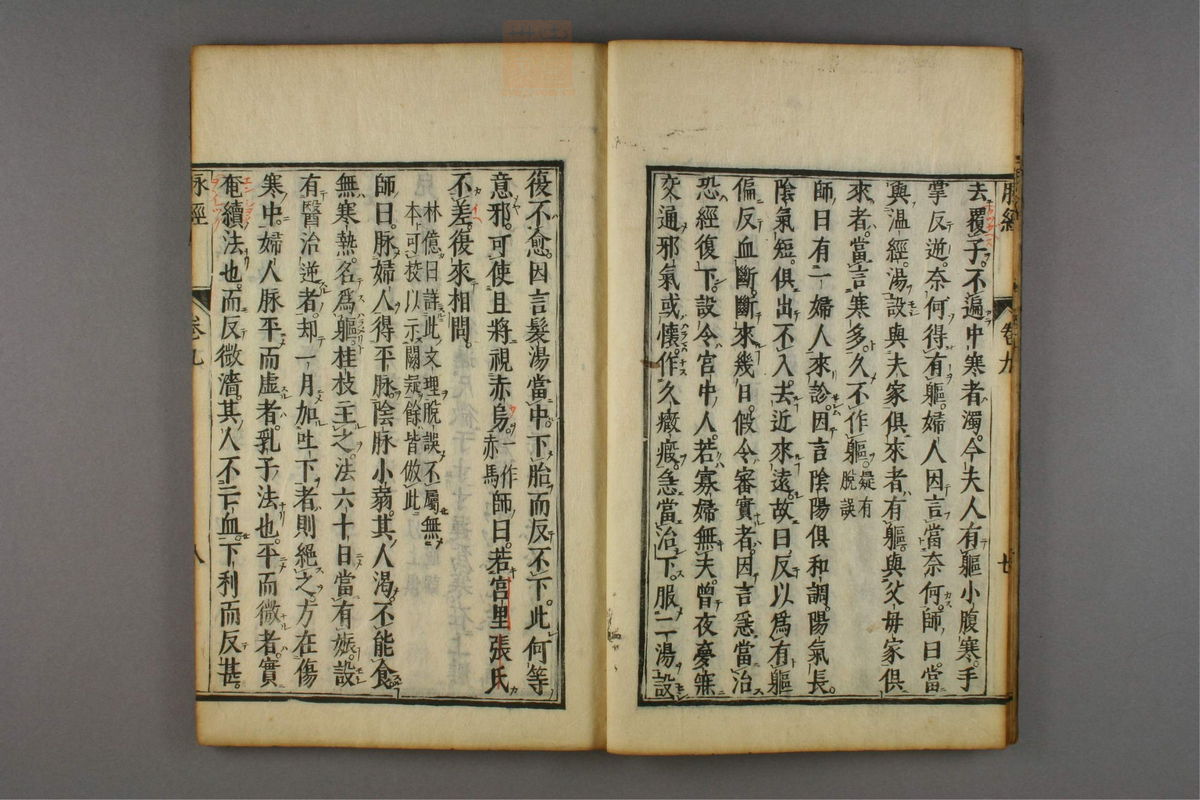 脉經
卷九
七
去覆子。不遍中寒者濁。今夫人有軀小腹寒。手
掌反逆。奈何得有軀。婦人因言當奈何。師曰。當
與温經湯。設與夫家俱來者有軀。與父母家俱
來者。當言寒多。久不作軀。疑有脫誤
師曰有二婦人來診。因言陰陽俱和調。陽氣長。
陰氣短。俱出不入。去近來遠。故曰反以爲有軀
偏反血斷。斷來幾日。假令審實者。因言急當治
恐經復下。設令宮中人。若寡婦無夫。曾夜夢寐
交通邪氣。或懷作久癥瘕。急當治下。服二湯。設
復不愈。因言髮湯當中下胎。而反不下。此何等
意邪。可使且將視赤烏。一作赤馬師曰。若宮里張氏
不差。復來相問。
林億曰詳此文理脫誤不屬無
本可校以示闕疑餘皆倣此。
師曰。脉婦人得平脉。陰脉小蒻。其人渴。不能食
無寒熱。名爲軀。桂枝主之。法六十日當有娠。設
有醫治逆者。却一月。加吐下者。則絕之。方在傷
寒中。婦人脉平而虛者。乳子法也。平而微者。實
奄續法也。而反微濇。其人不亡血。下利而反甚。
脉經
卷九
八